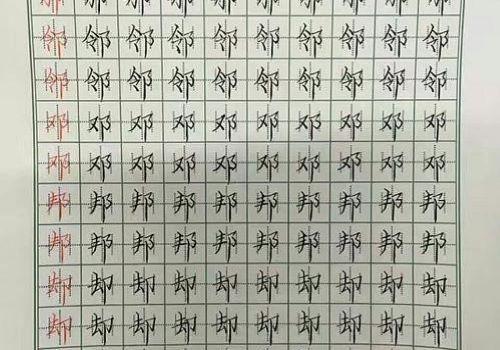 邻邻邻邻邻邻邻邻邻邻
邻邻邻邻邻邻邻邻邻邻
邓邓邓邓邓邓邓邓邓邓
邓邓邓邓邓邓邓邓邓邓
邦邦邦邦邦邦邦邦邦邦
邦邦邦邦邦邦邦邦邦邦
却却却却却却却却却却
却却却却却却却却却却